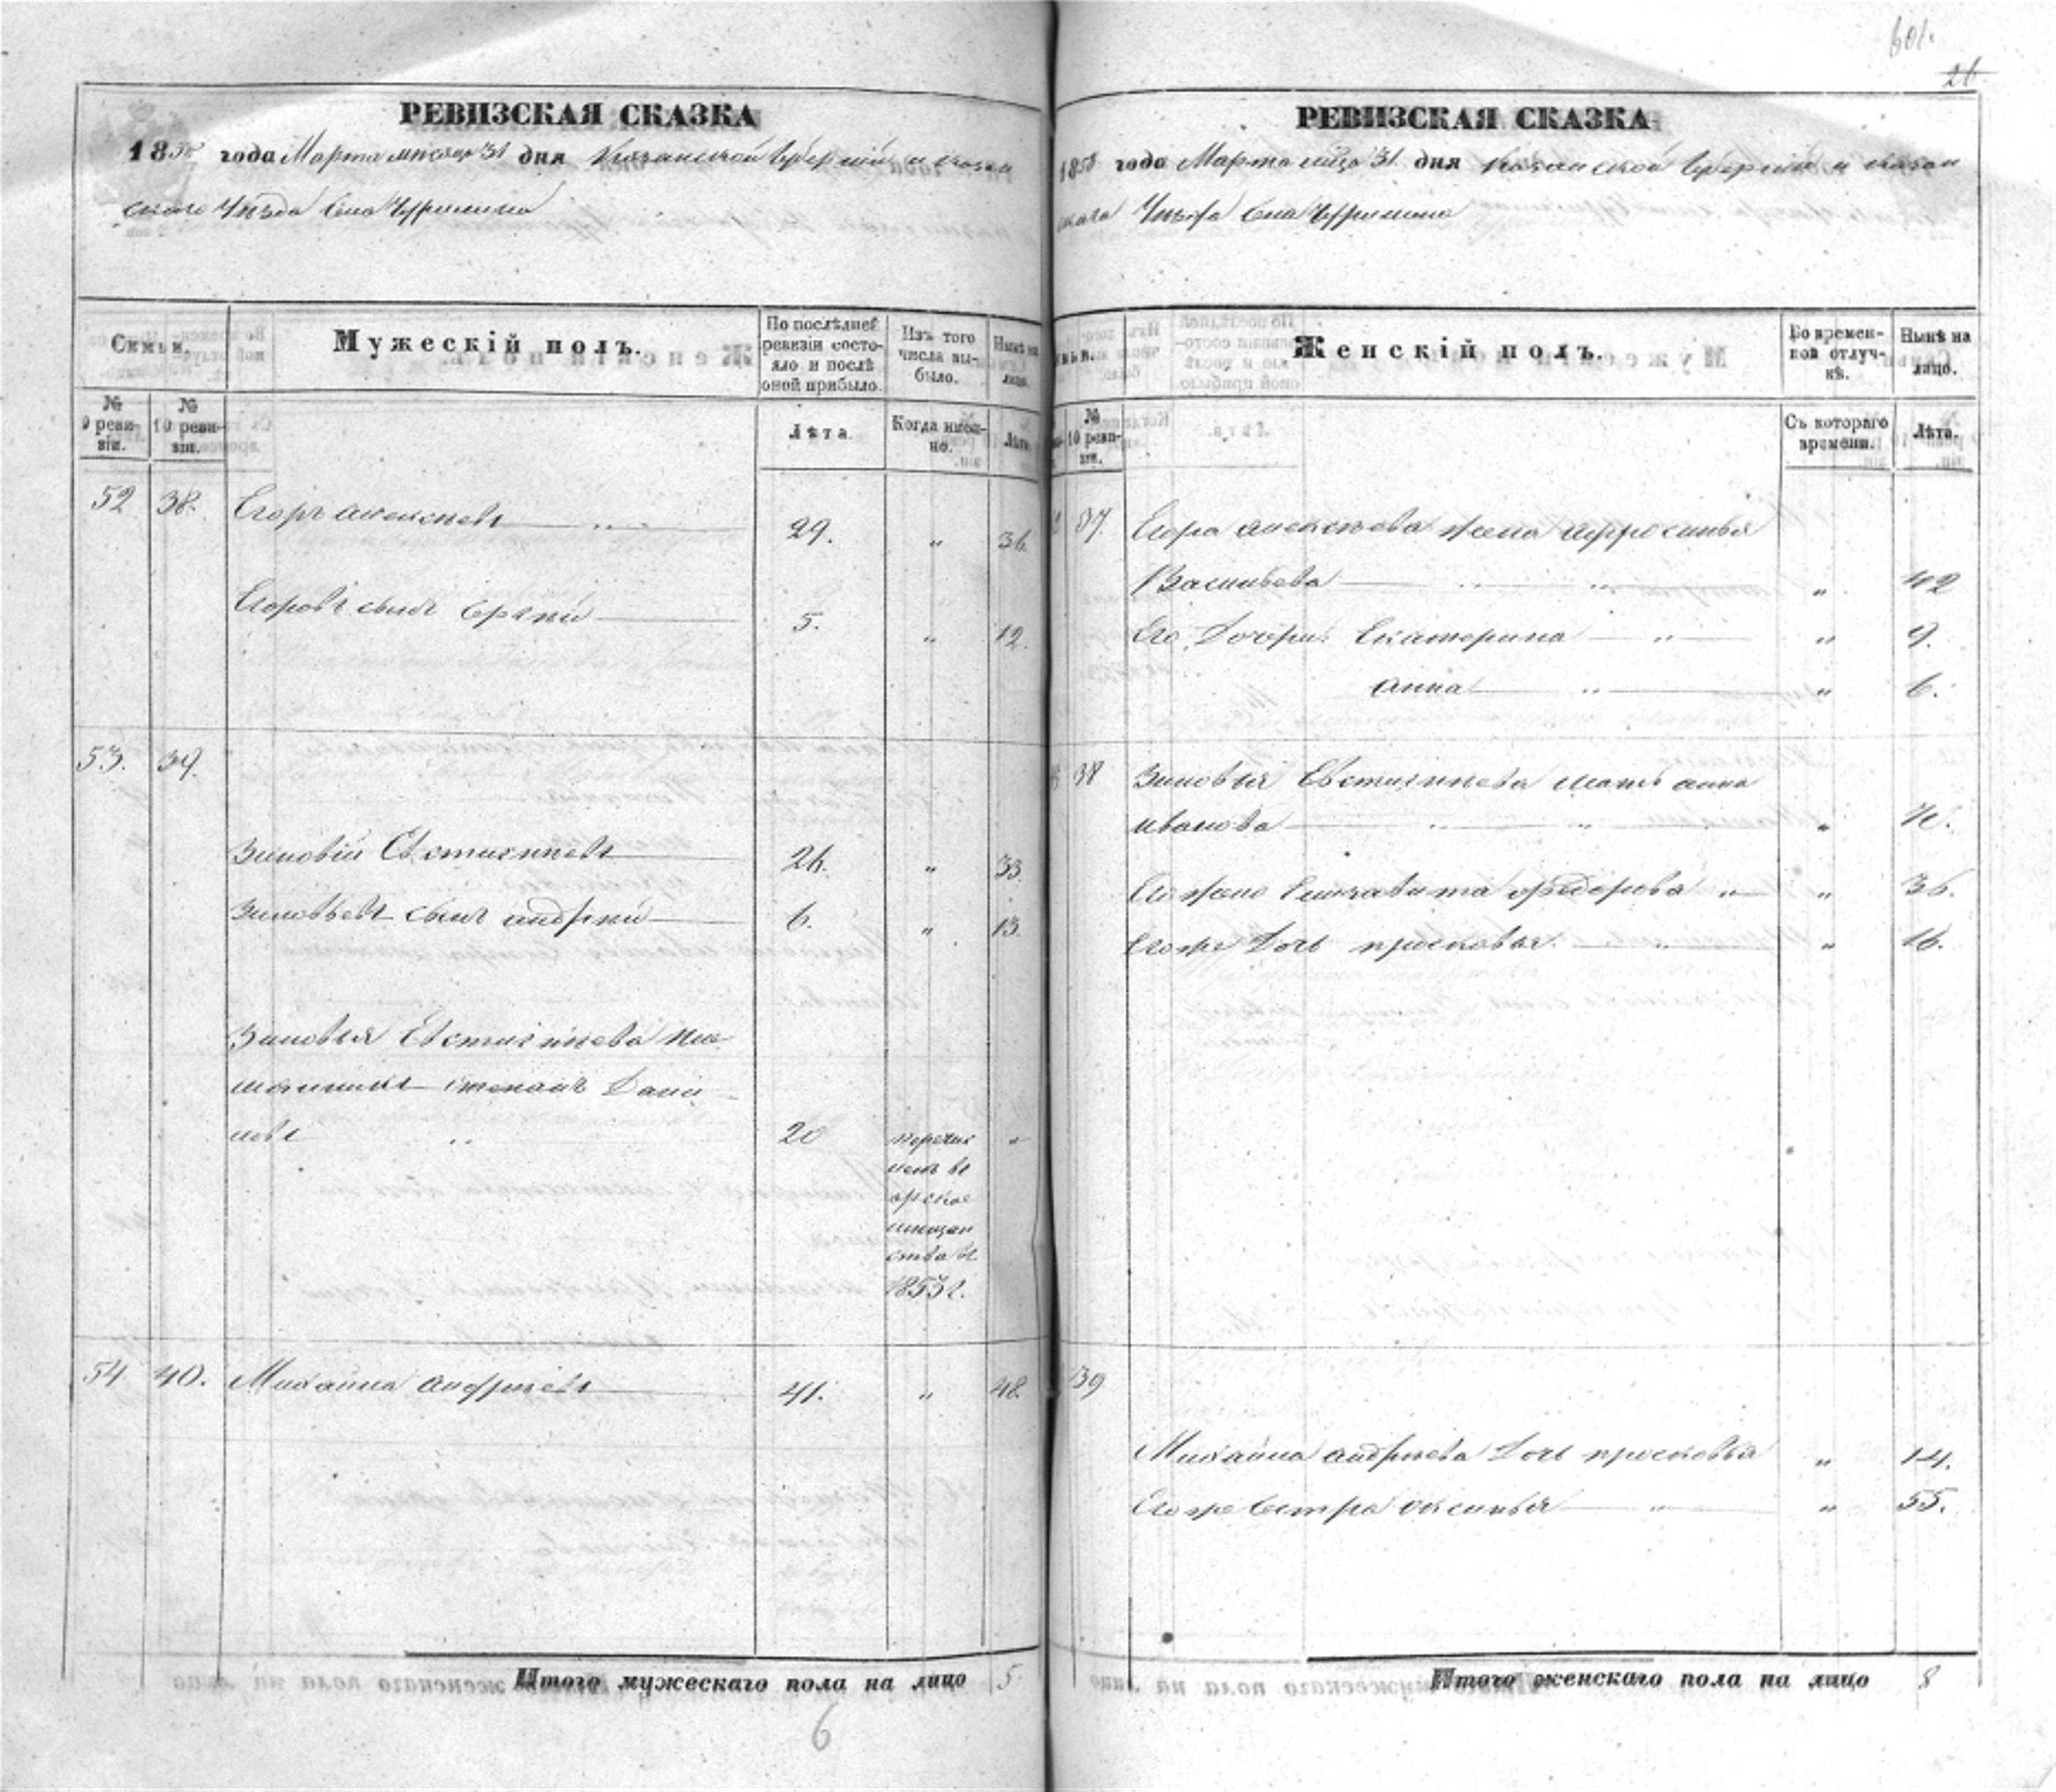 РЕВИЗСКАЯ СКАЗКА
1858 года Марта месяца 31 дня Казанской Губернии и Казан
скаго Уѣзда Села
Семьи.
Мужескій полъ.
По послѣдней ревизіи состояло и послѣ оной прибыло.
Изъ того числа выбыло.
Нынѣ на лицо.
№ 9 ревизіи.
№ 10 ревизіи.
Лѣта
Когда именно.
Лѣта
52 38. Егоръ Алексѣевъ 29. " 36.
Егоровъ сынъ Сергѣй 5. " 12.
53. 39.
Зиновій Евстигнѣевъ 26. " 33.
Зиновьевъ сынъ Андрей 6. " 13.
Зиновья Евстигнѣева пле
мянникъ Степанъ Дани
ловъ 20 перечис "
ленъ въ
арское
мещан
ство въ
1853 г.
54 40. Михайла Андреевъ 41. " 48.
Итого мужескаго пола на лицо 5
6
601.
26
РЕВИЗСКАЯ СКАЗКА
1858 года Марта мца 31 дня Казанской Губернии и Казан
скаго Уѣзда Села
Женскій полъ.
Во временной отлучкѣ.
Нынѣ на лицо.
№ 10 ревизіи.
Съ котораго времени.
Лѣта.
37. Егора Алексѣева жена Афросинья
Васильева " 42
Его Дочери: Екатерина " 9.
Анна " 6.
38 Зиновья Евстигнѣева мать Анна
Иванова "
Его жена Елизавита Федорова " 36.
Его же Дочь Прасковья " 16.
39
Михайла Андреева Дочь Прасковья " 14.
Его же Сестра Оксинья " 55.
Итого женскаго пола на лицо 8